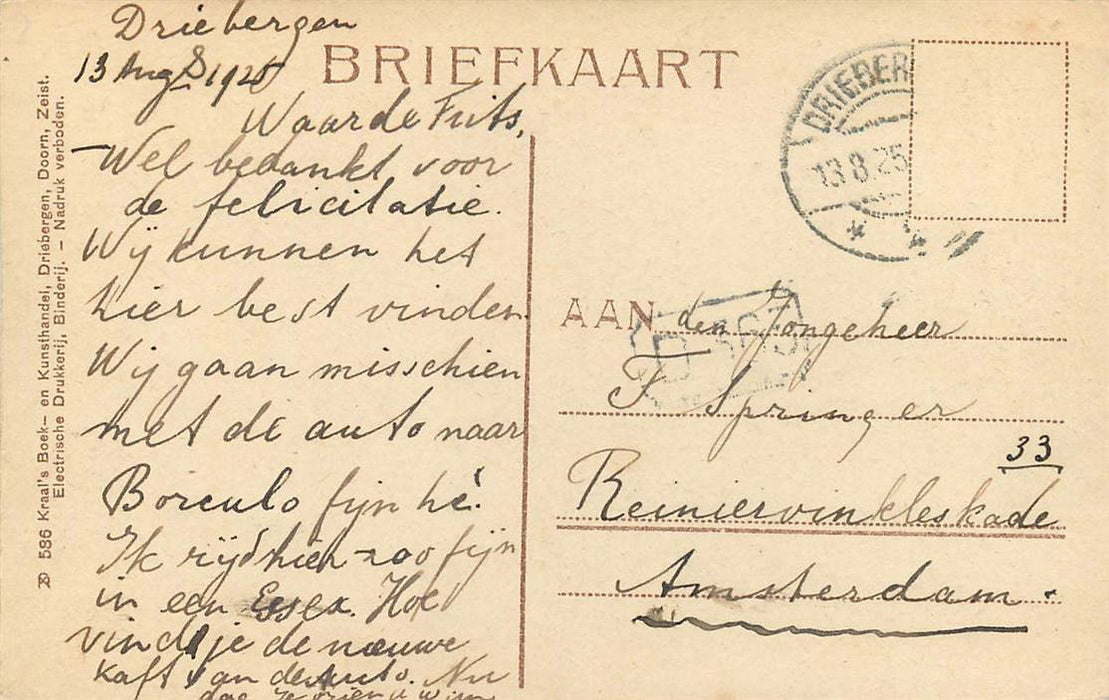 Driebergen
13 Augs 1925
BRIEFKAART
Waarde Frits,
Wel bedankt voor
de felicitatie.
Wij kunnen het
hier best vinden.
Wij gaan misschien
met de auto naar
Borculo fijn hè!
Ik rijd hier zoo fijn
in een Essex. Hoe
vind je de nieuwe
kaft van de Auto. Nu
dag
DRIEBER
13.8.25
AAN den Jongeheer
F Springer
33
Reiniervinkleskade
Amsterdam.
586 Kraal's Boek- en Kunsthandel, Driebergen, Doorn, Zeist.
Electrische Drukkerij, Binderij. - Nadruk verboden.